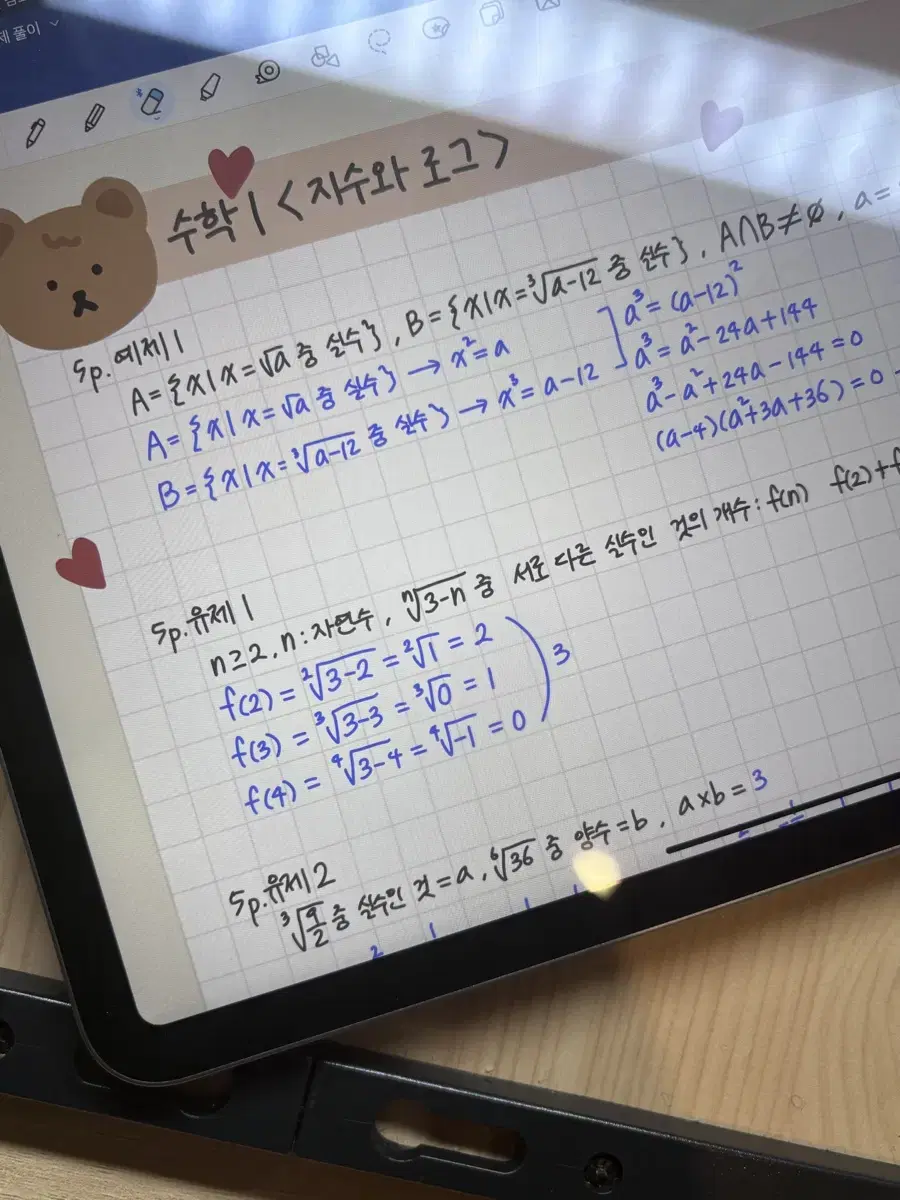 제 풀이
수학 I <지수와 로그>
5p. 예제 1
A={x|x=√a 중 실수}, B={x|x=³√a-12 중 실수}, A∩B≠∅, a=
A={x|x=√a 중 실수} → x²=a
B={x|x=³√a-12 중 실수} → x³=a-12
a³=(a-12)²
a³=a²-24a+144
a³-a²+24a-144=0
(a-4)(a²+3a+36)=0
5p. 유제 1
n≥2, n:자연수, ⁿ√3-n 중 서로 다른 실수인 것의 개수: f(n) f(2)+f
f(2) = ²√3-2 = ²√1 = 2
f(3) = ³√3-3 = ³√0 = 1
f(4) = ⁴√3-4 = ⁴√-1 = 0
3
5p. 유제 2
³√9/2 중 실수인 것=a, ⁶√36 중 양수=b, a×b=3